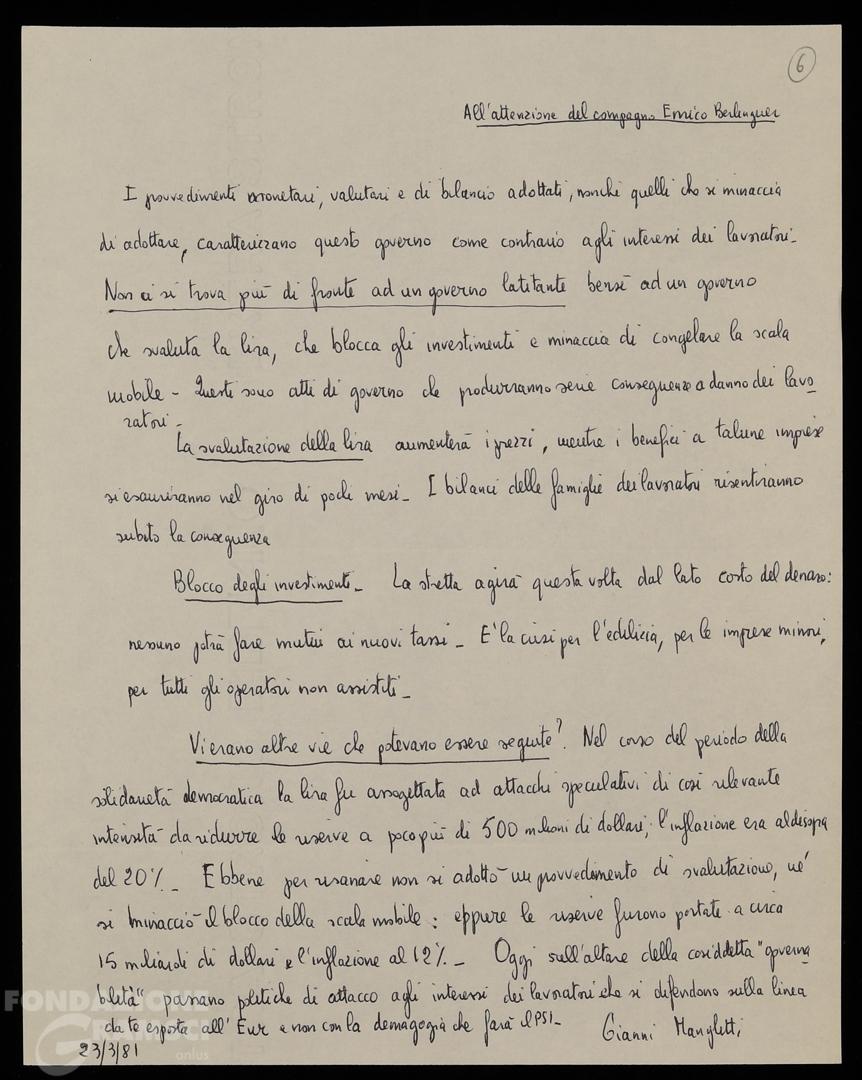 6
All'attenzione del compagno Enrico Berlinguer
I provvedimenti monetari, valutari e di bilancio adottati, nonché quelli che si minaccia
di adottare, caratterizzano questo governo come contrario agli interessi dei lavoratori-
Non ci si trova più di fronte ad un governo latitante bensì ad un governo
che svaluta la lira, che blocca gli investimenti e minaccia di congelare la scala
mobile - Questi sono atti di governo che produrranno serie conseguenze a danno dei lavo
ratori-
La svalutazione della lira aumenterà i prezzi, mentre i benefici a talune imprese
si esauriranno nel giro di pochi mesi- I bilanci delle famiglie dei lavoratori risentiranno
subito la conseguenza
Blocco degli investimenti- La stretta agirà questa volta dal lato costo del denaro:
nessuno potrà fare mutui ai nuovi tassi- E' la crisi per l'edilizia, per le imprese minori,
per tutti gli operatori non assistiti-
Vi erano altre vie che potevano essere seguite? Nel corso del periodo della
solidarietà democratica la lira fu assogettata ad attacchi speculativi di così rilevante
intensità da ridurre le riserve a poco più di 500 milioni di dollari; l'inflazione era al disopra
del 20%- Ebbene per risanare non si adottò un provvedimento di svalutazione, né
si minacciò il blocco della scala mobile: eppure le riserve furono portate a circa
15 miliardi di dollari e l'inflazione al 12%- Oggi sull'altare della cosiddetta "governa
bilità" passano politiche di attacco agli interessi dei lavoratori che si difendono sulla linea
da te esposta all'Eur e non con la demagogia che farà il PSI-
Gianni Manghetti
23/3/81
FONDAZIONE
GRAMSCI
onlus